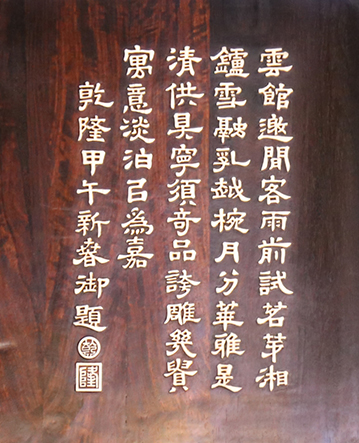 雲館邀閒客雨前試茗芽湘
鑪雪融乳越椀月分華雖是
清供具寧須奇品誇雕幾賁
寓意淡泊㠯為嘉
乾隆甲午新春御題
乾
隆